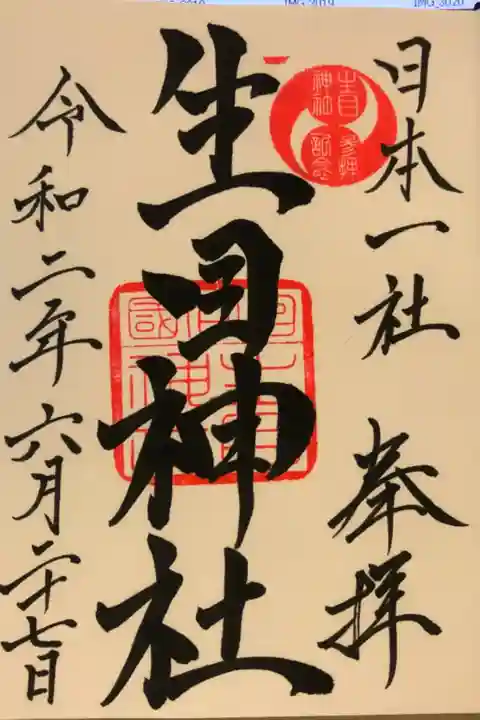 日本一社 奉拝
生目神社
令和二年六月二十七日
生目神社 参拝記念